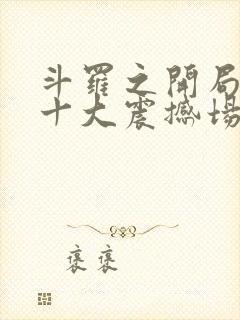 斗羅之開局
十大震撼場
褒褒